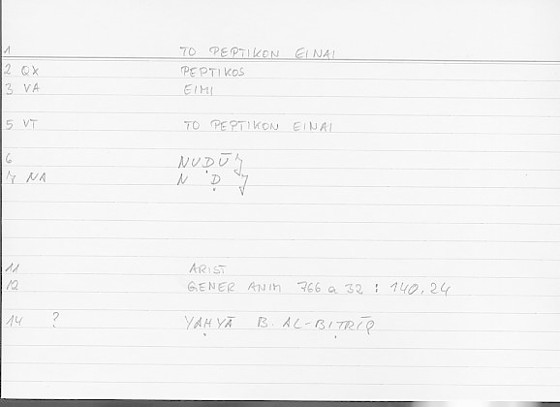 1 TO PEPTIKON EINAI
2 QX PEPTIKOS
3 VA EIMI
5 VT TO PEPTIKON EINAI
6 NUḌŪǦ
7 NA N Ḍ Ǧ
11 ARIST
12 GENER ANIM 766 a 32 : 140.24
14 ? YAḤYĀ B. AL-BIṬRĪQ